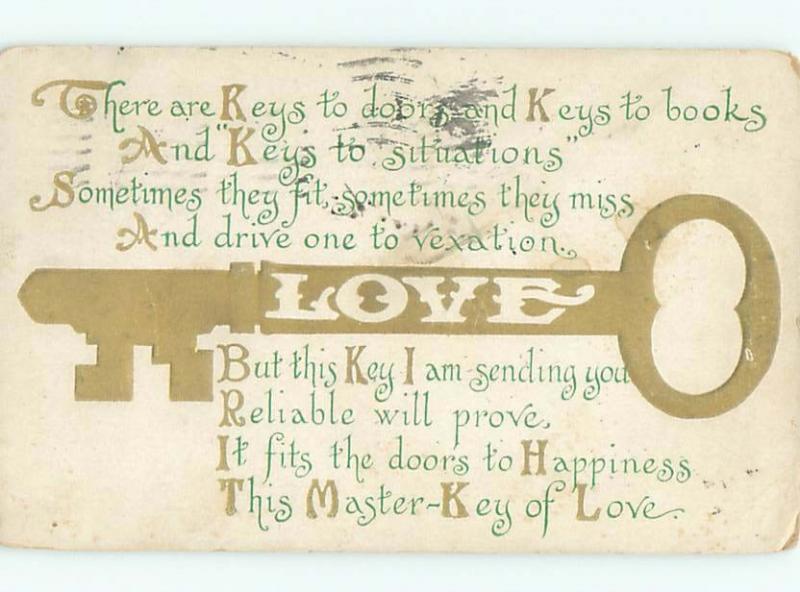 There are Keys to doors and Keys to books
And "Keys to situations"
Sometimes they fit, sometimes they miss
And drive one to vexation.
LOVE
But this Key I am sending you
Reliable will prove,
It fits the doors to Happiness
This Master-Key of Love.